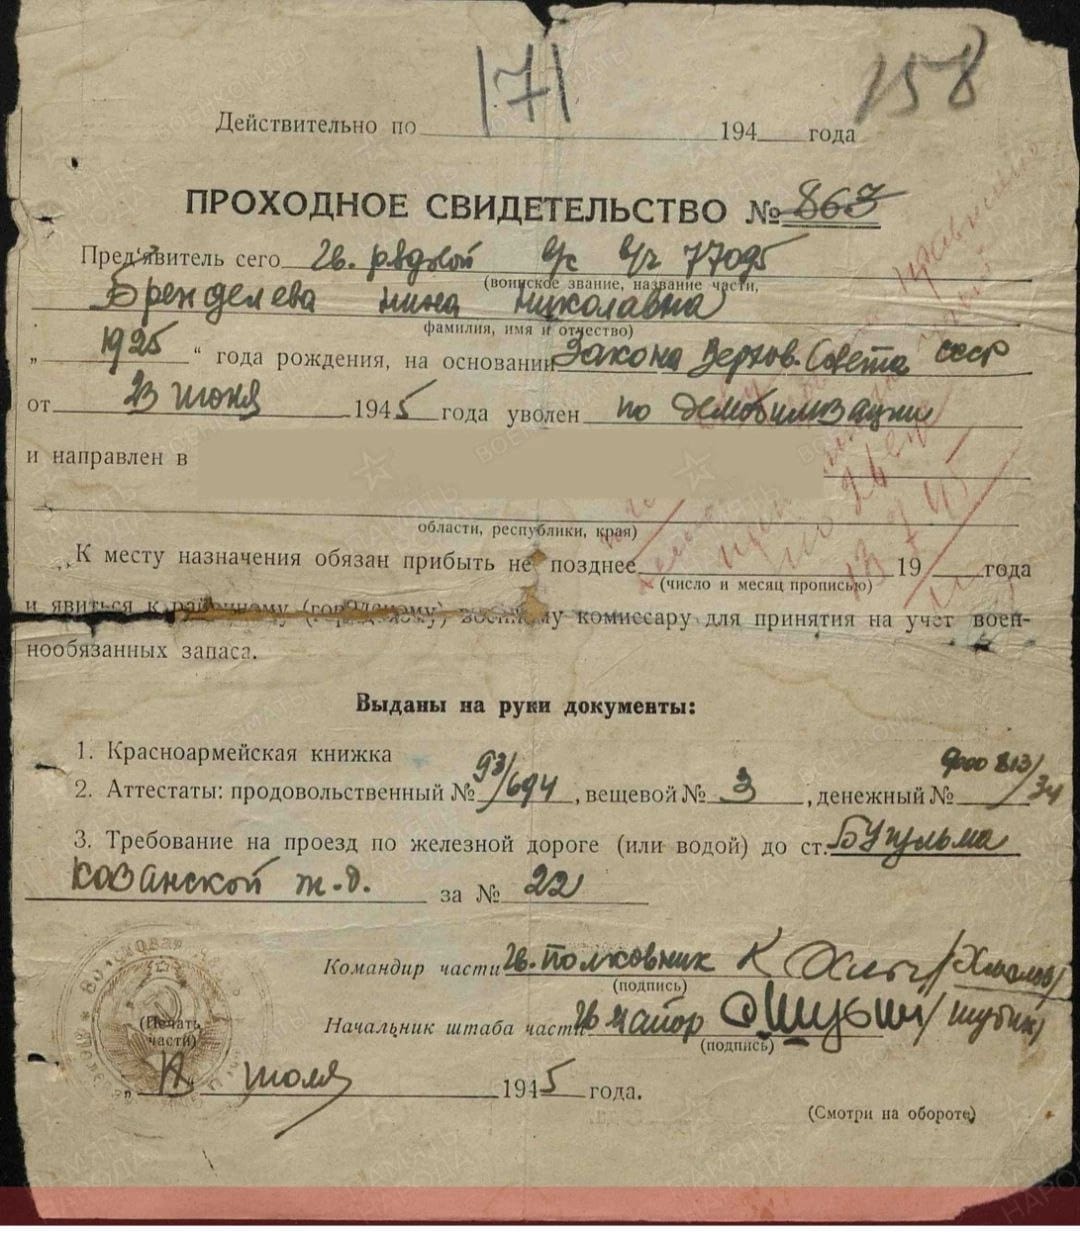 171 158
Действительно по 194 года
ПРОХОДНОЕ СВИДЕТЕЛЬСТВО № 863
Пред'явитель сего Гв. рядовой в/с в/ч 77095
(воинское звание, название части,
Бренделева Нина Николавна
фамилия, имя и отчество)
„ 1925 “ года рождения, на основании Закона Верхов. Совета СССР
от 23 июня 1945 года уволен по демобилизации
и направлен в
области, республики, края)
К месту назначения обязан прибыть не позднее 19 года
(число и месяц прописью)
и явиться к районному (городскому) военному комиссару для принятия на учет воен-
нообязанных запаса.
Выданы на руки документы:
1. Красноармейская книжка
2. Аттестаты: продовольственный № 93/694, вещевой № 3, денежный № 813/34
3. Требование на проезд по железной дороге (или водой) до ст. Бугульма
Казанской ж.д. за № 22
Командир части Гв. Полковник
(подпись)
Начальник штаба части Гв майор Шубин / Шубин/
(подпись)
(Печать
части)
июля 1945 года.
(Смотри на обороте)